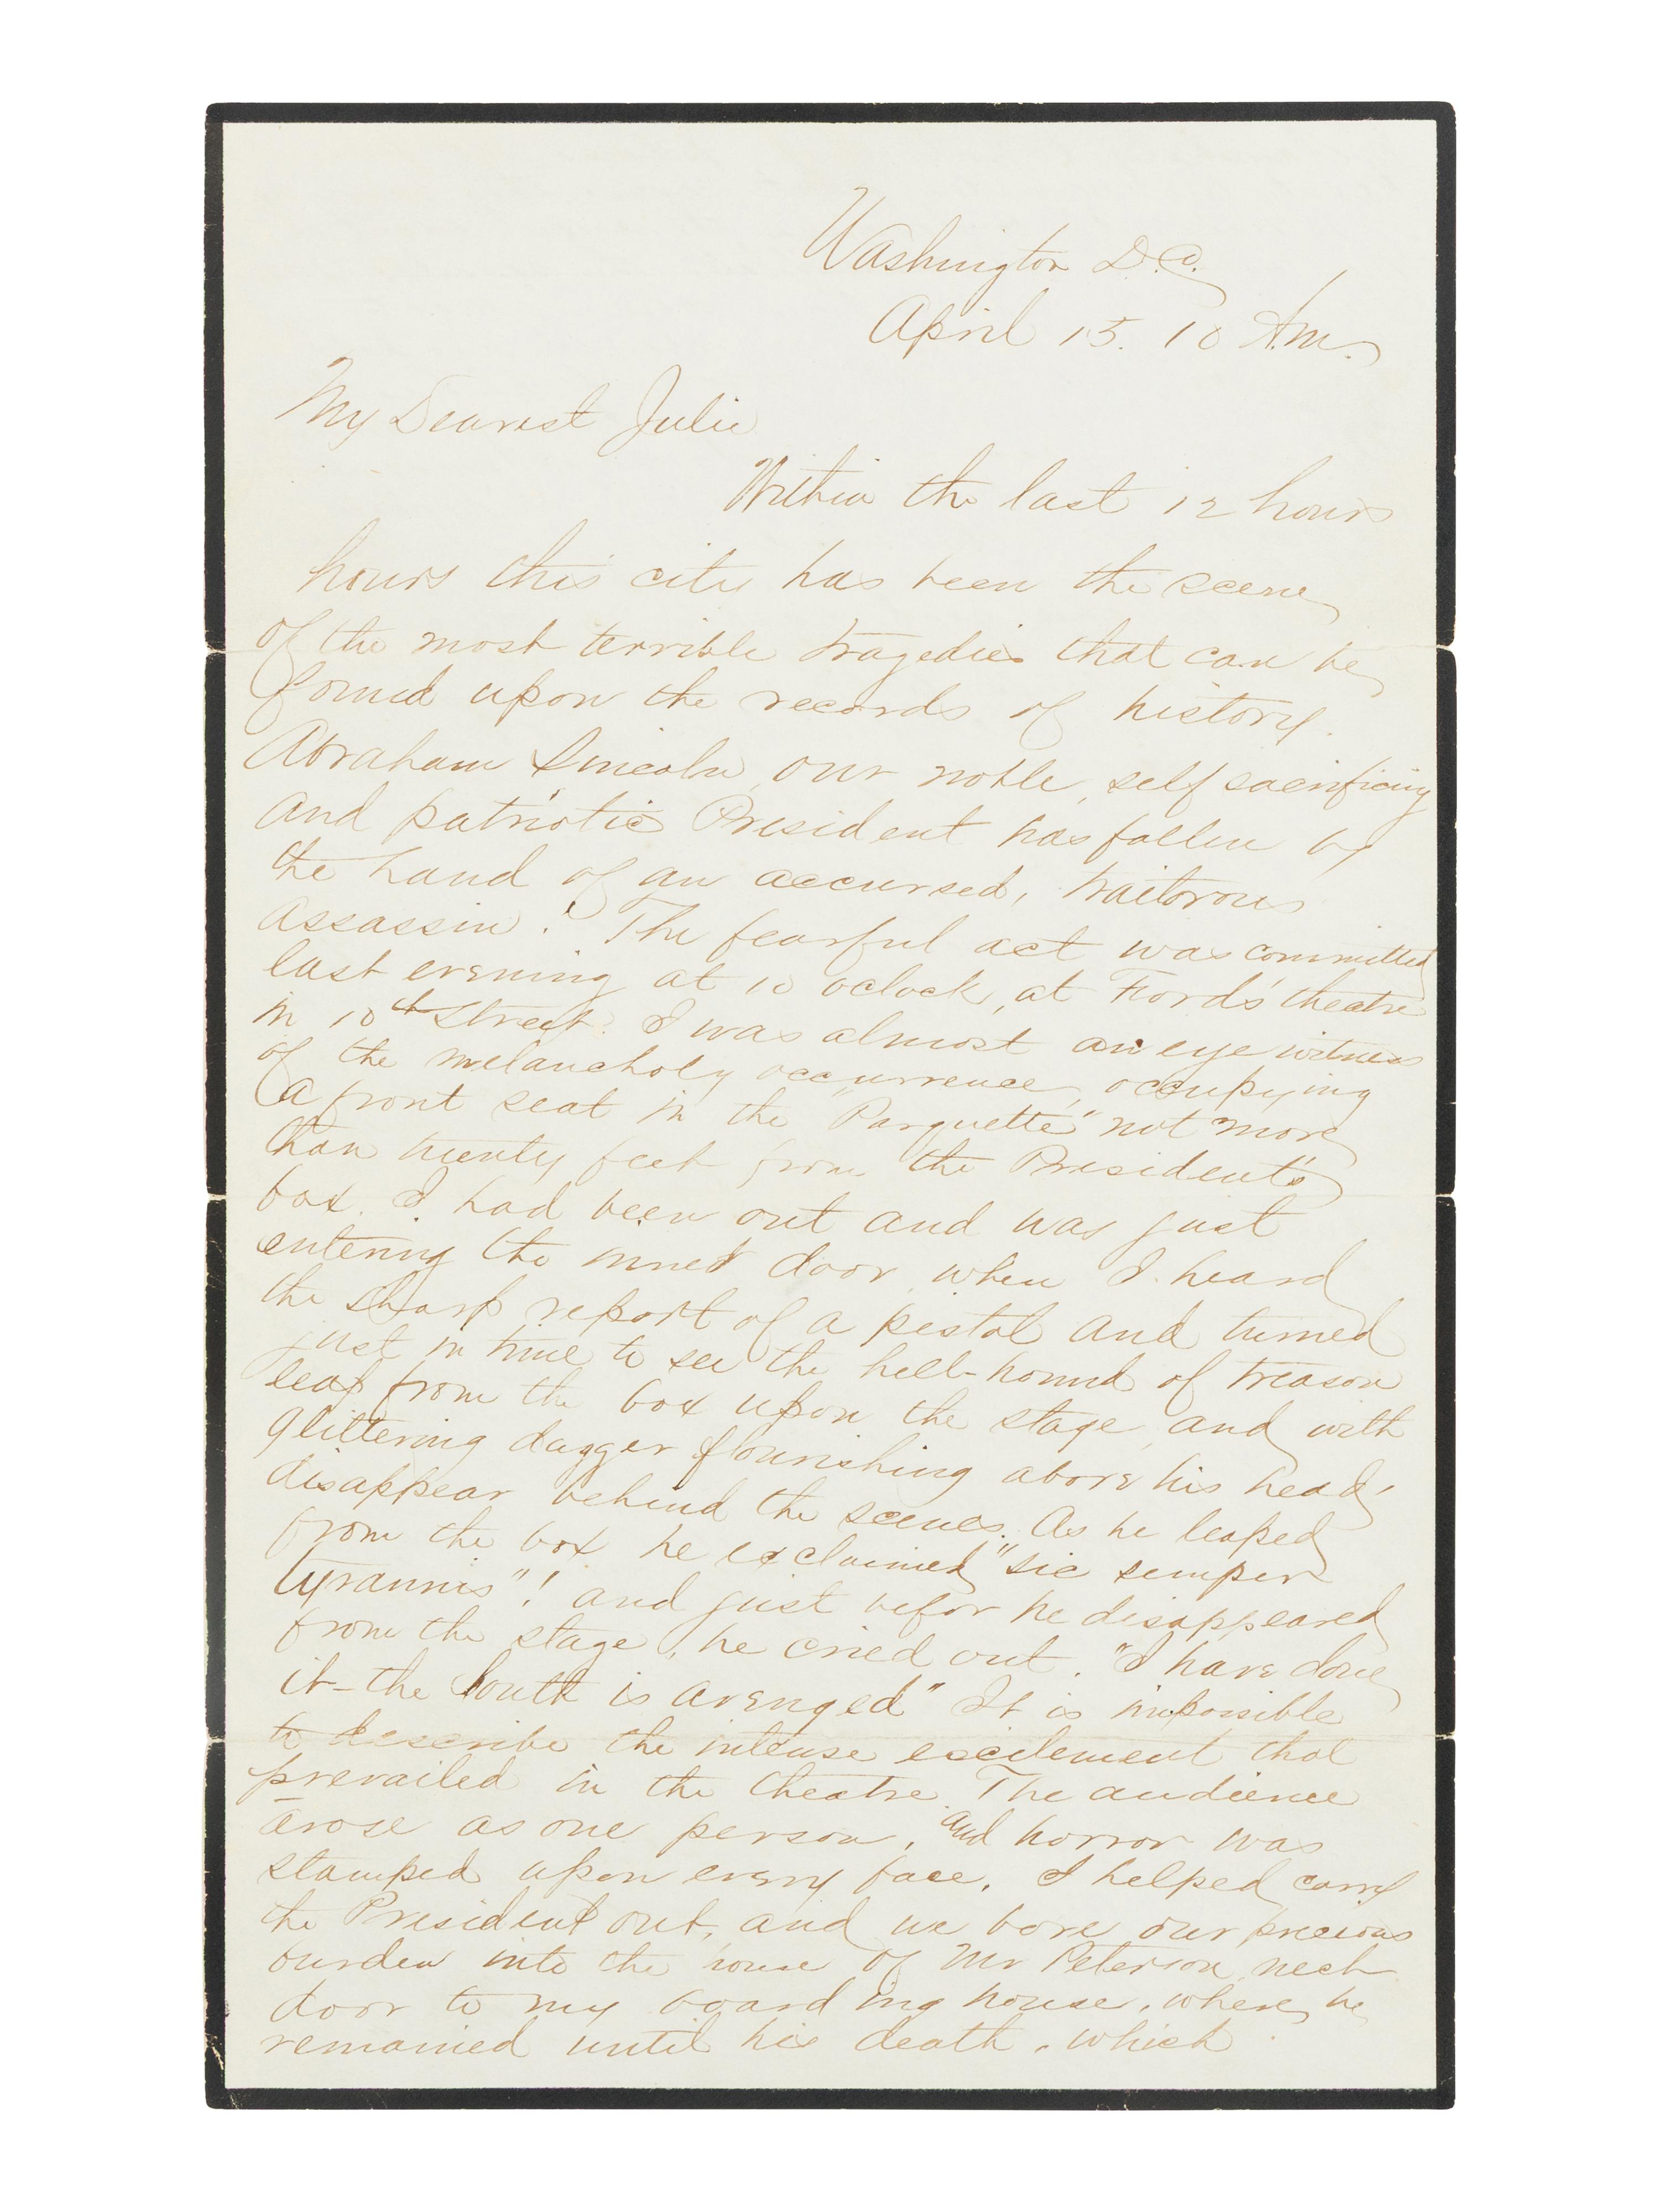 Washington D.C.
April 15. 10 A.M.
My Dearest Julie
Within the last 12 hours
hours this city has been the scene
of the most terrible tragedies that can be
found upon the records of history.
Abraham Lincoln, our noble, self sacrificing
and patriotic President has fallen by
the hand of an accursed, traitorous
assassin! The fearful act was committed
last evening at 10 oclock, at Fords' theatre
in 10th Street. I was almost an eye witness
of the melancholy occurrence, occupying
a front seat in the "Parquette" not more
than twenty feet from the President's
box. I had been out and was just
entering the inner door, when I heard
the sharp report of a pistol and turned
just in time to see the hell-hound of treason
leap from the box upon the stage, and with
glittering dagger flourishing above his head,
disappear behind the scenes. As he leaped
from the box he exclaimed "sic semper
tyrannis"! and just befor he disappeared
from the stage, he cried out. "I have done
it - the South is avenged" It is impossible
to describe the intense excitement that
prevailed in the theatre. The audience
arose as one person, and horror was
stamped upon every face. I helped carry
the President out, and we bore our precious
burden into the house of Mr Peterson next
door to my boarding house, where he
remained until his death, which